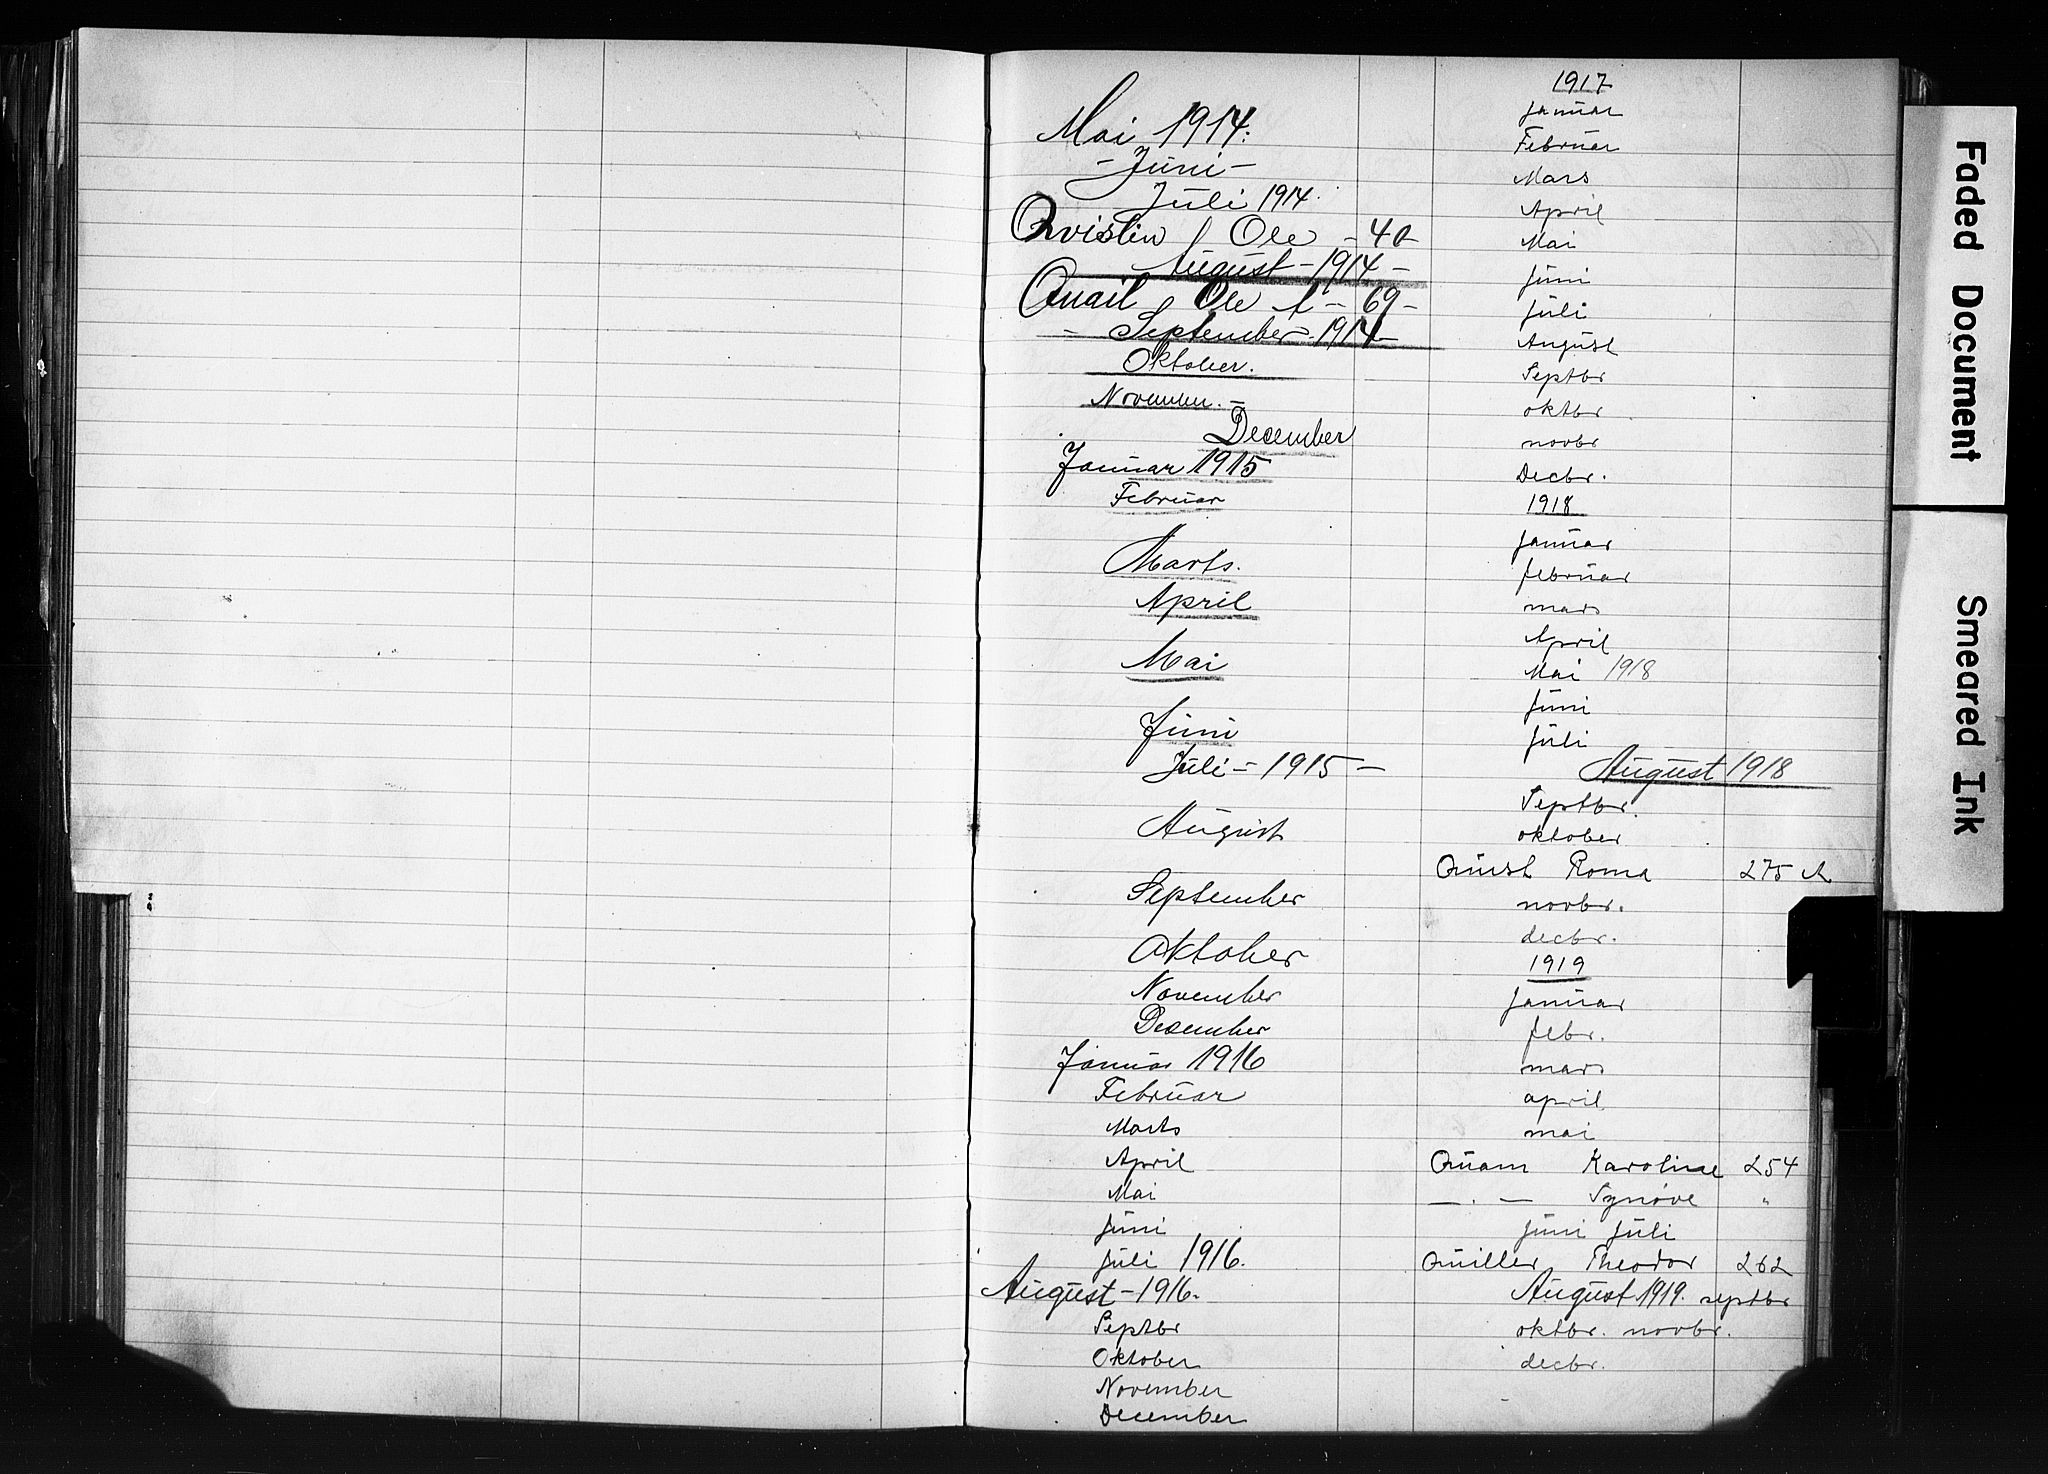 Mai 1914.
- Juni -
Juli 1914.
Qvislin, Ole - 40 -
August - 1914 -
Quail, Ole A - 69 -
- September - 1914 -
Oktober.
November. -
December
Januar 1915
Februar
Marts.
April
Mai
Juni
Juli - 1915 -
August
September
Oktober
November
Desember
Januar 1916
Februar
Marts
April
Mai
Juni
Juli 1916.
August - 1916.
Septbr
Oktober
November
December
1917
Januar
Februar
Mars
April
Mai
Juni
Juli
August
Septbr
oktbr.
novbr
Decbr.
1918
Januar
februar
mars
April
Mai 1918
Juni
Juli
August 1918
Septbr.
oktober
Quist Roma 275 A
novbr.
decbr.
1919
Januar
febr.
mars
april
mai
Quam Karoline 254
— . — Synøve "
Juni Juli
Quiller Theodor 262
August 1919. septbr
oktbr. novbr.
decbr.
Faded Document
Smeared Ink